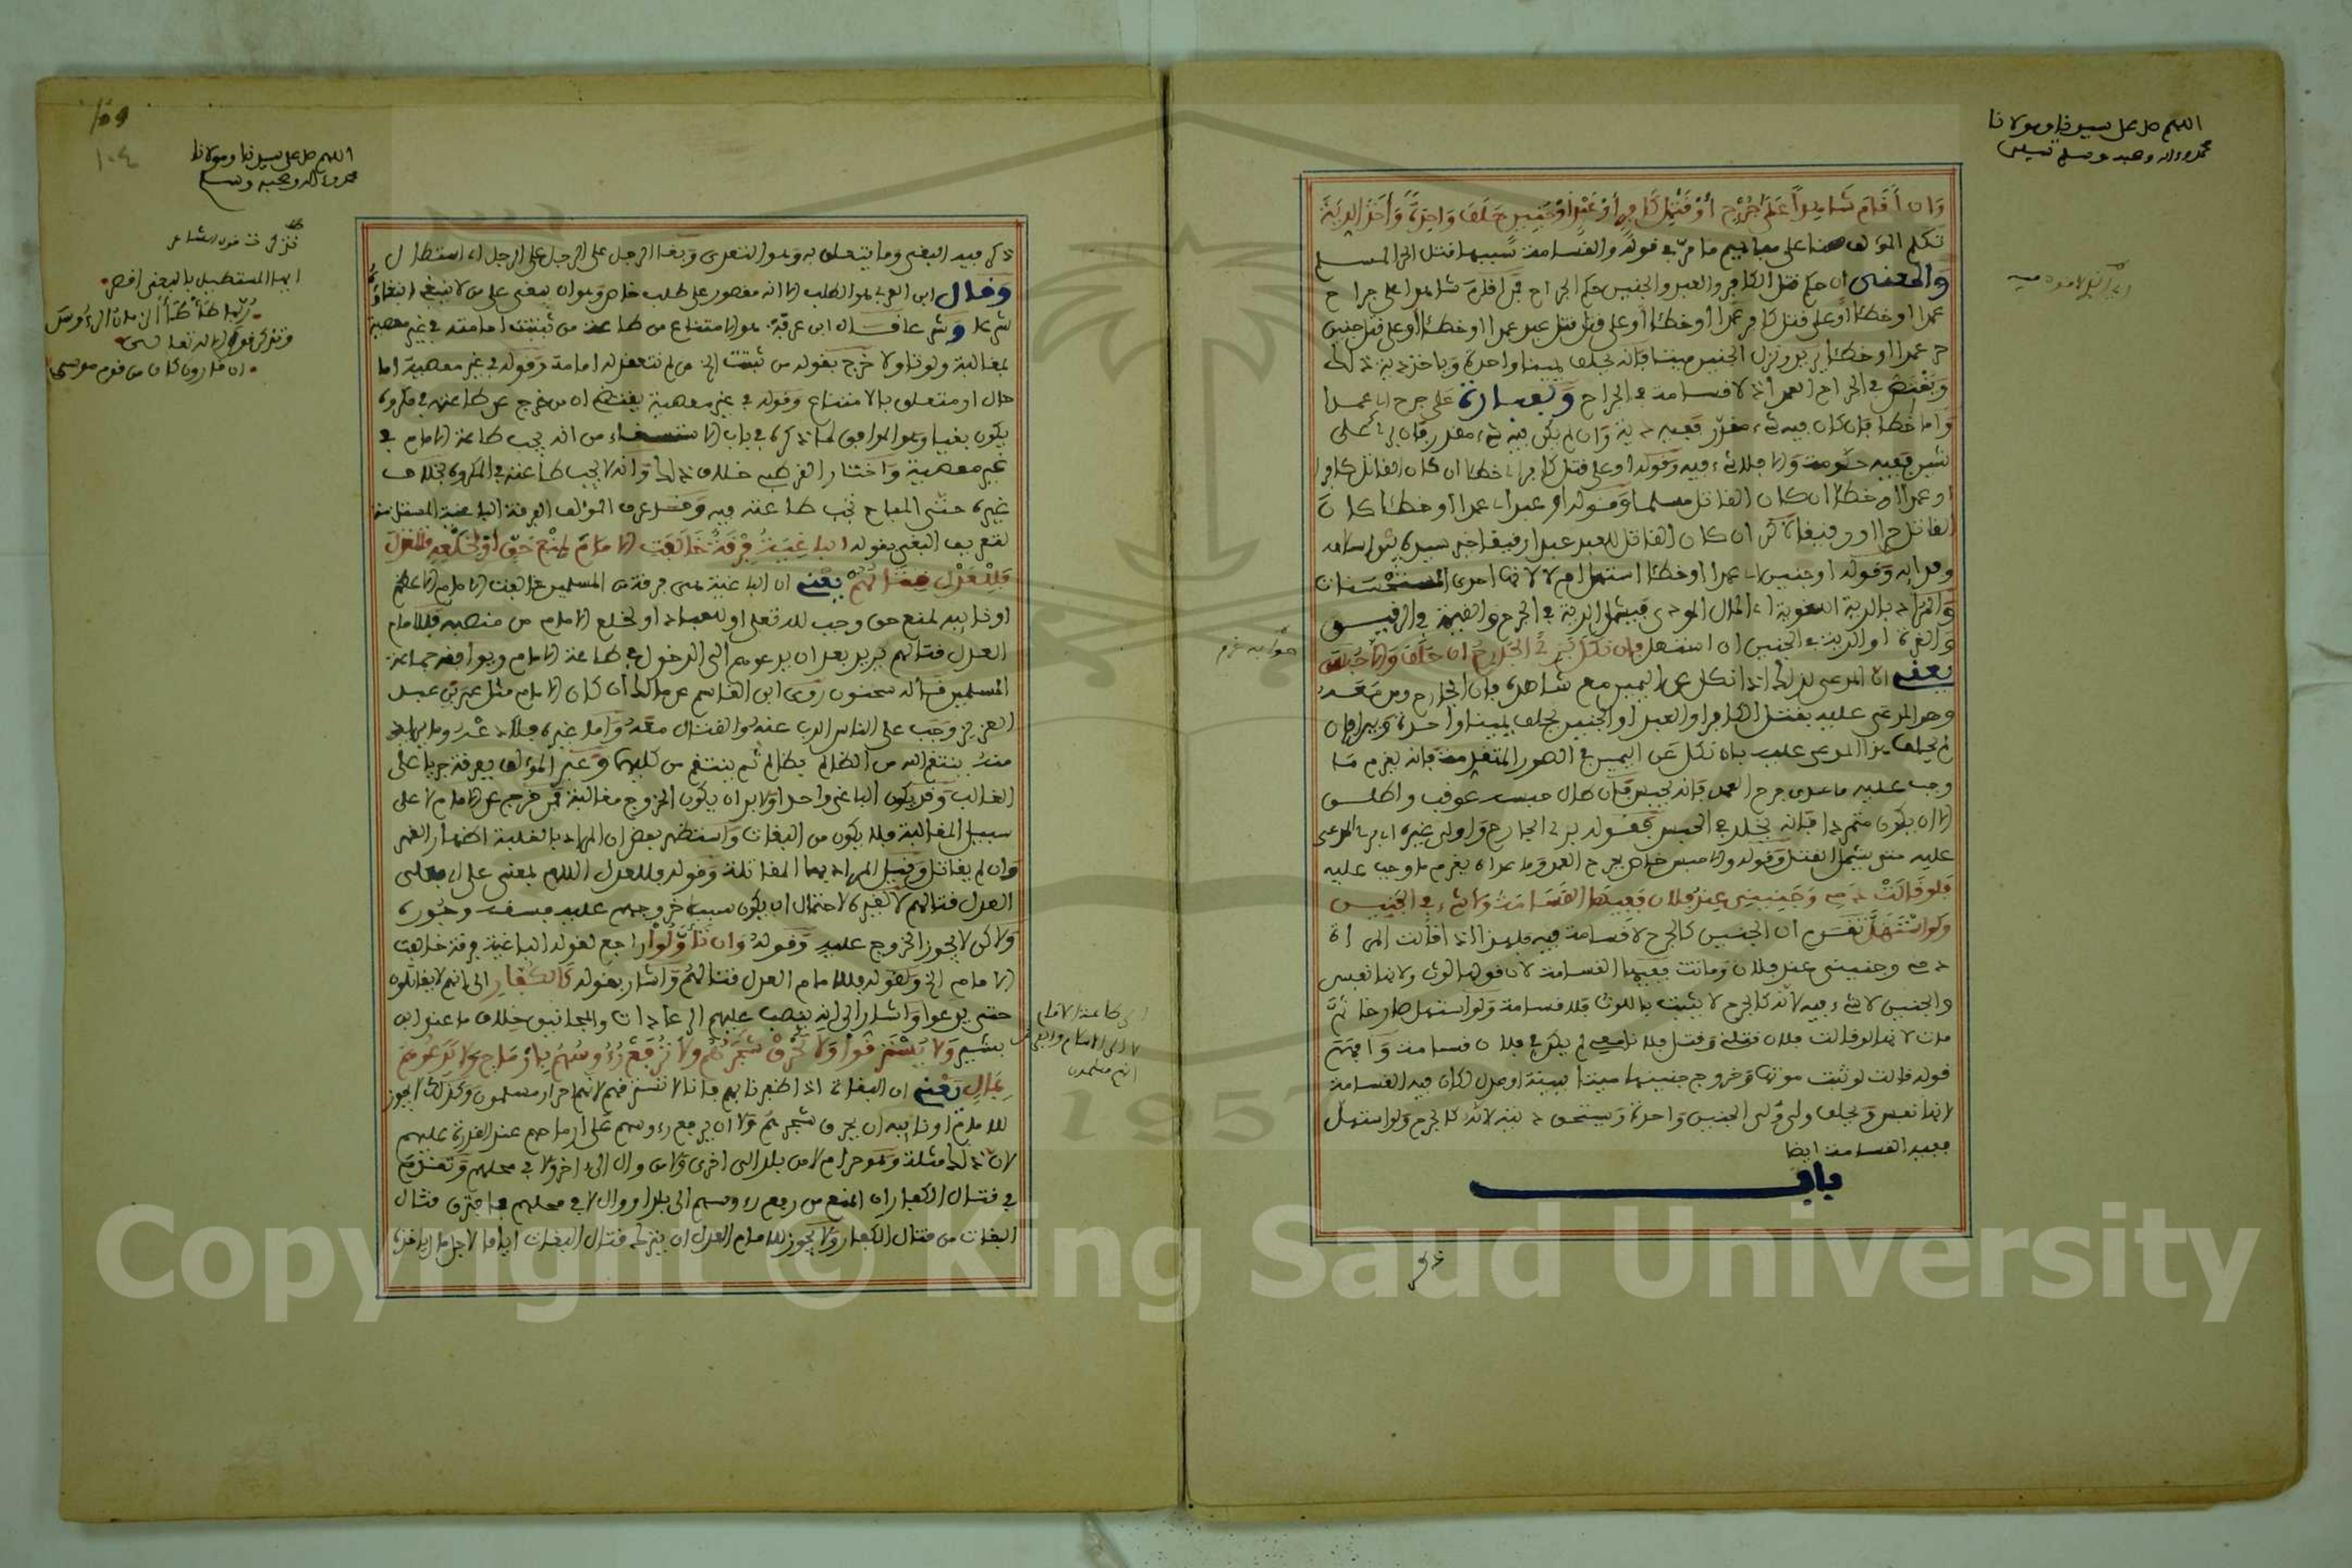 اللهم صل على سيدنا ومولانا
محمد وءاله وصحبه وسلم تسليما
وان أقام شاهدا على جرح أو قتل كافر أو عبد أو جنين حلف واحدة وأخذ الدية
تكلم المؤلف هنا على مفاهيم ما مر في قوله والقسامة سببها قتل الحر المسلم
والمعنى ان حكم قتل الكافر والعبد والجنين حكم الجراح فمن اقام شاهدا على جراح
عمدا او خطئا أو على قتل كافر عمدا أو خطئا أو على قتل عبد عمدا او خطئا أو على قتل جنين
عمدا او خطئا يريد ونزل الجنين ميتا فانه يحلف يمينا واحدة وياخذ دية ذلك
ويقتص في الجراح العمد اذ لا قسامة في الجراح وبعبارة على جرح اي عمدا
واما خطئا فان كان فيه شيء مقدر ففيه دية وان لم يكن فيه شيء مقدر فان برئ على
شين ففيه حكومة والا فلا شيء فيه وقوله او على قتل كافر اي خطئا ان كان القاتل كافرا
او عمدا او خطئا ان كان القاتل مسلما وقوله او عبد اي عمدا او خطئا كان
القاتل حرا او رقيقا لكن ان كان القاتل للعبد عبدا رقيقا خير سيده بين اسلامه
وفدائه وقوله او جنين اي عمدا او خطئا استهل ام لا لانها احدى المستحسنات
والمراد بالدية اللغوية اي المال المودى فيشمل الدية في الجرح والقيمة في الرقيق
والغرة او الدية في الجنين ان استهل وان نكل برئ الجارح ان حلف والا حبس
يعني ان المدعي لذلك اذا نكل عن اليمين مع شاهده فان الجارح ومن معه
وهو المدعى عليه بقتل الكافر او العبد او الجنين يحلف يمينا واحدة ويبرا فان
لم يحلف هذا المدعى عليه بان نكل عن اليمين في الصور المتقدمة فانه يغرم ما
وجب عليه ما عدى جرح العمد فانه يحبس فان طال حبسه عوقب واطلق
الا ان يكون متمردا فانه يخلد في الحبس فقوله برئ الجارح واولى غيره اي برئ المدعى
عليه حتى يشمل القتل وقوله والا حبس خاص بجرح العمد وما عداه يغرم ما وجب عليه
فلو قالت دمي وجنيني عند فلان ففيها القسامة ولا شيء في الجنين
ولو استهل تقدم ان الجنين كالجرح لا قسامة فيه فلهذا اذا قالت المراة
دمي وجنيني عند فلان وماتت ففيها القسامة لان قولها لوث ولانها نفس
والجنين لا شيء فيه لانه كالجرح لا يثبت باللوث فلا قسامة ولو استهل صارخا ثم
مات لانها لو قالت فلان قتلني وقتل فلانا معي لم يكن في فلان قسامة وافهم
قوله قالت لو ثبت موتها وخروج جنينها ميتا ببينة او عدل لكان فيه القسامة
لانها نفس ويحلف ولي الجنين واحدة ويستحق ديته لانه كالجرح ولو استهل
ففيه القسامة ايضا
باب
ذكر
اللهم صل على سيدنا ومولانا
محمد وءاله وصحبه وسلم
١٠٤
ايها المستطيل بالبغي اقصر
ربما طأطأ الزمان الرءوس
وتذكر قول الاله تعالى
ان قارون كان من قوم موسى
ذكر فيه البغي وما يتعلق به وهو التعدي وبغا الرجل على الرجل اي استطال
وقال ابن العربي هو الطلب الا انه مقصور على طلب خاص وهو ان يبغي على من لا ينبغي ابتغاؤه
شرعا وشرعا قال ابن عرفة هو الامتناع من طاعة من ثبتت امامته في غير معصية
بمغالبة ولو تاولا خرج بقوله من ثبتت الخ من لم تنعقد له امامة وقوله في غير معصية اما
حال او متعلق بالامتناع وقوله في غير معصية يقتضي ان من خرج عن طاعته في مكروه
يكون بغيا وهو الموافق لما ذكره في باب الاستسقاء من انه يجب طاعة الامام في
غير معصية واختار القرطبي خلاف ذلك وانه لا يجب طاعته في المكروه بخلاف
غيره حتى المباح تجب طاعته فيه وقد عرف المؤلف الفرقة الباغية المستلزمة
لتعريف البغي بقوله الباغية فرقة خالفت الامام لمنع حق أو لخلعه
فللعدل قتالهم يعني ان الباغية هي فرقة من المسلمين خالفت الامام الاعظم
او نائبه لمنع حق وجب لله تعلى او للعباد او لخلع الامام من منصبه فللامام
العدل قتالهم يريد بعد ان يدعوهم الى الدخول في طاعة الامام وموافقة جماعة
المسلمين قاله سحنون روى ابن القاسم عن مالك ان كان الامام مثل عمر بن عبد
العزيز وجب على الناس الذب عنه والقتال معه واما غيره فلا دعه وما يراد
منه ينتقم الله من الظالم بظالم ثم ينتقم من كليهما وعبر المؤلف بفرقة جريا على
الغالب وقد يكون الباغي واحدا ولا بد ان يكون الخروج مغالبة فمن خرج عن الامام لا على
سبيل المغالبة فلا يكون من البغات واستظهر بعض ان المراد بالمغالبة اظهار القهر
وان لم يقاتل وقيل المراد بها المقاتلة وقوله فللعدل اللام بمعنى على اي فعلى
العدل قتالهم لا لغيره لاحتمال ان يكون سبب خروجهم عليه فسقه وجوره
ولاكن لا يجوز الخروج عليه وقوله وان تأولوا راجع لقوله الباغية فرقة خالفت
الامام الخ ولقوله فللامام العدل قتالهم واشار بقوله كالكفار الى انهم لا يقاتلون
حتى يدعوا واشار الى انه ينصب عليهم الرعادات والمجانيق خلاف ما عند ابن
بشير ولا يسترقوا ولا يحرق شجرهم ولا ترفع رءوسهم بأرماح ولا يدعوهم
بمال يعني ان البغاة اذا ظفرنا بهم فاننا لا نسترقهم لانهم احرار مسلمون وكذلك لا يجوز
للامام او نائبه ان يحرق شجرهم ولا ان يرفع رءوسهم على ارماحهم عند القدرة عليهم
لان ذلك مثلة وهو حرام لا من بلد الى اخرى ولا من وال الى اخر ولا في محلهم وتقدم
في قتال الكفار ان المنع من رفع رءوسهم الى بلد او وال لا في محلهم فافترق قتال
البغات من قتال الكفار ولا يجوز للامام العدل ان يترك قتال البغات اياما لاجل مال ياخذه
الى طاعة الامام
Copyright © King Saud University
1957